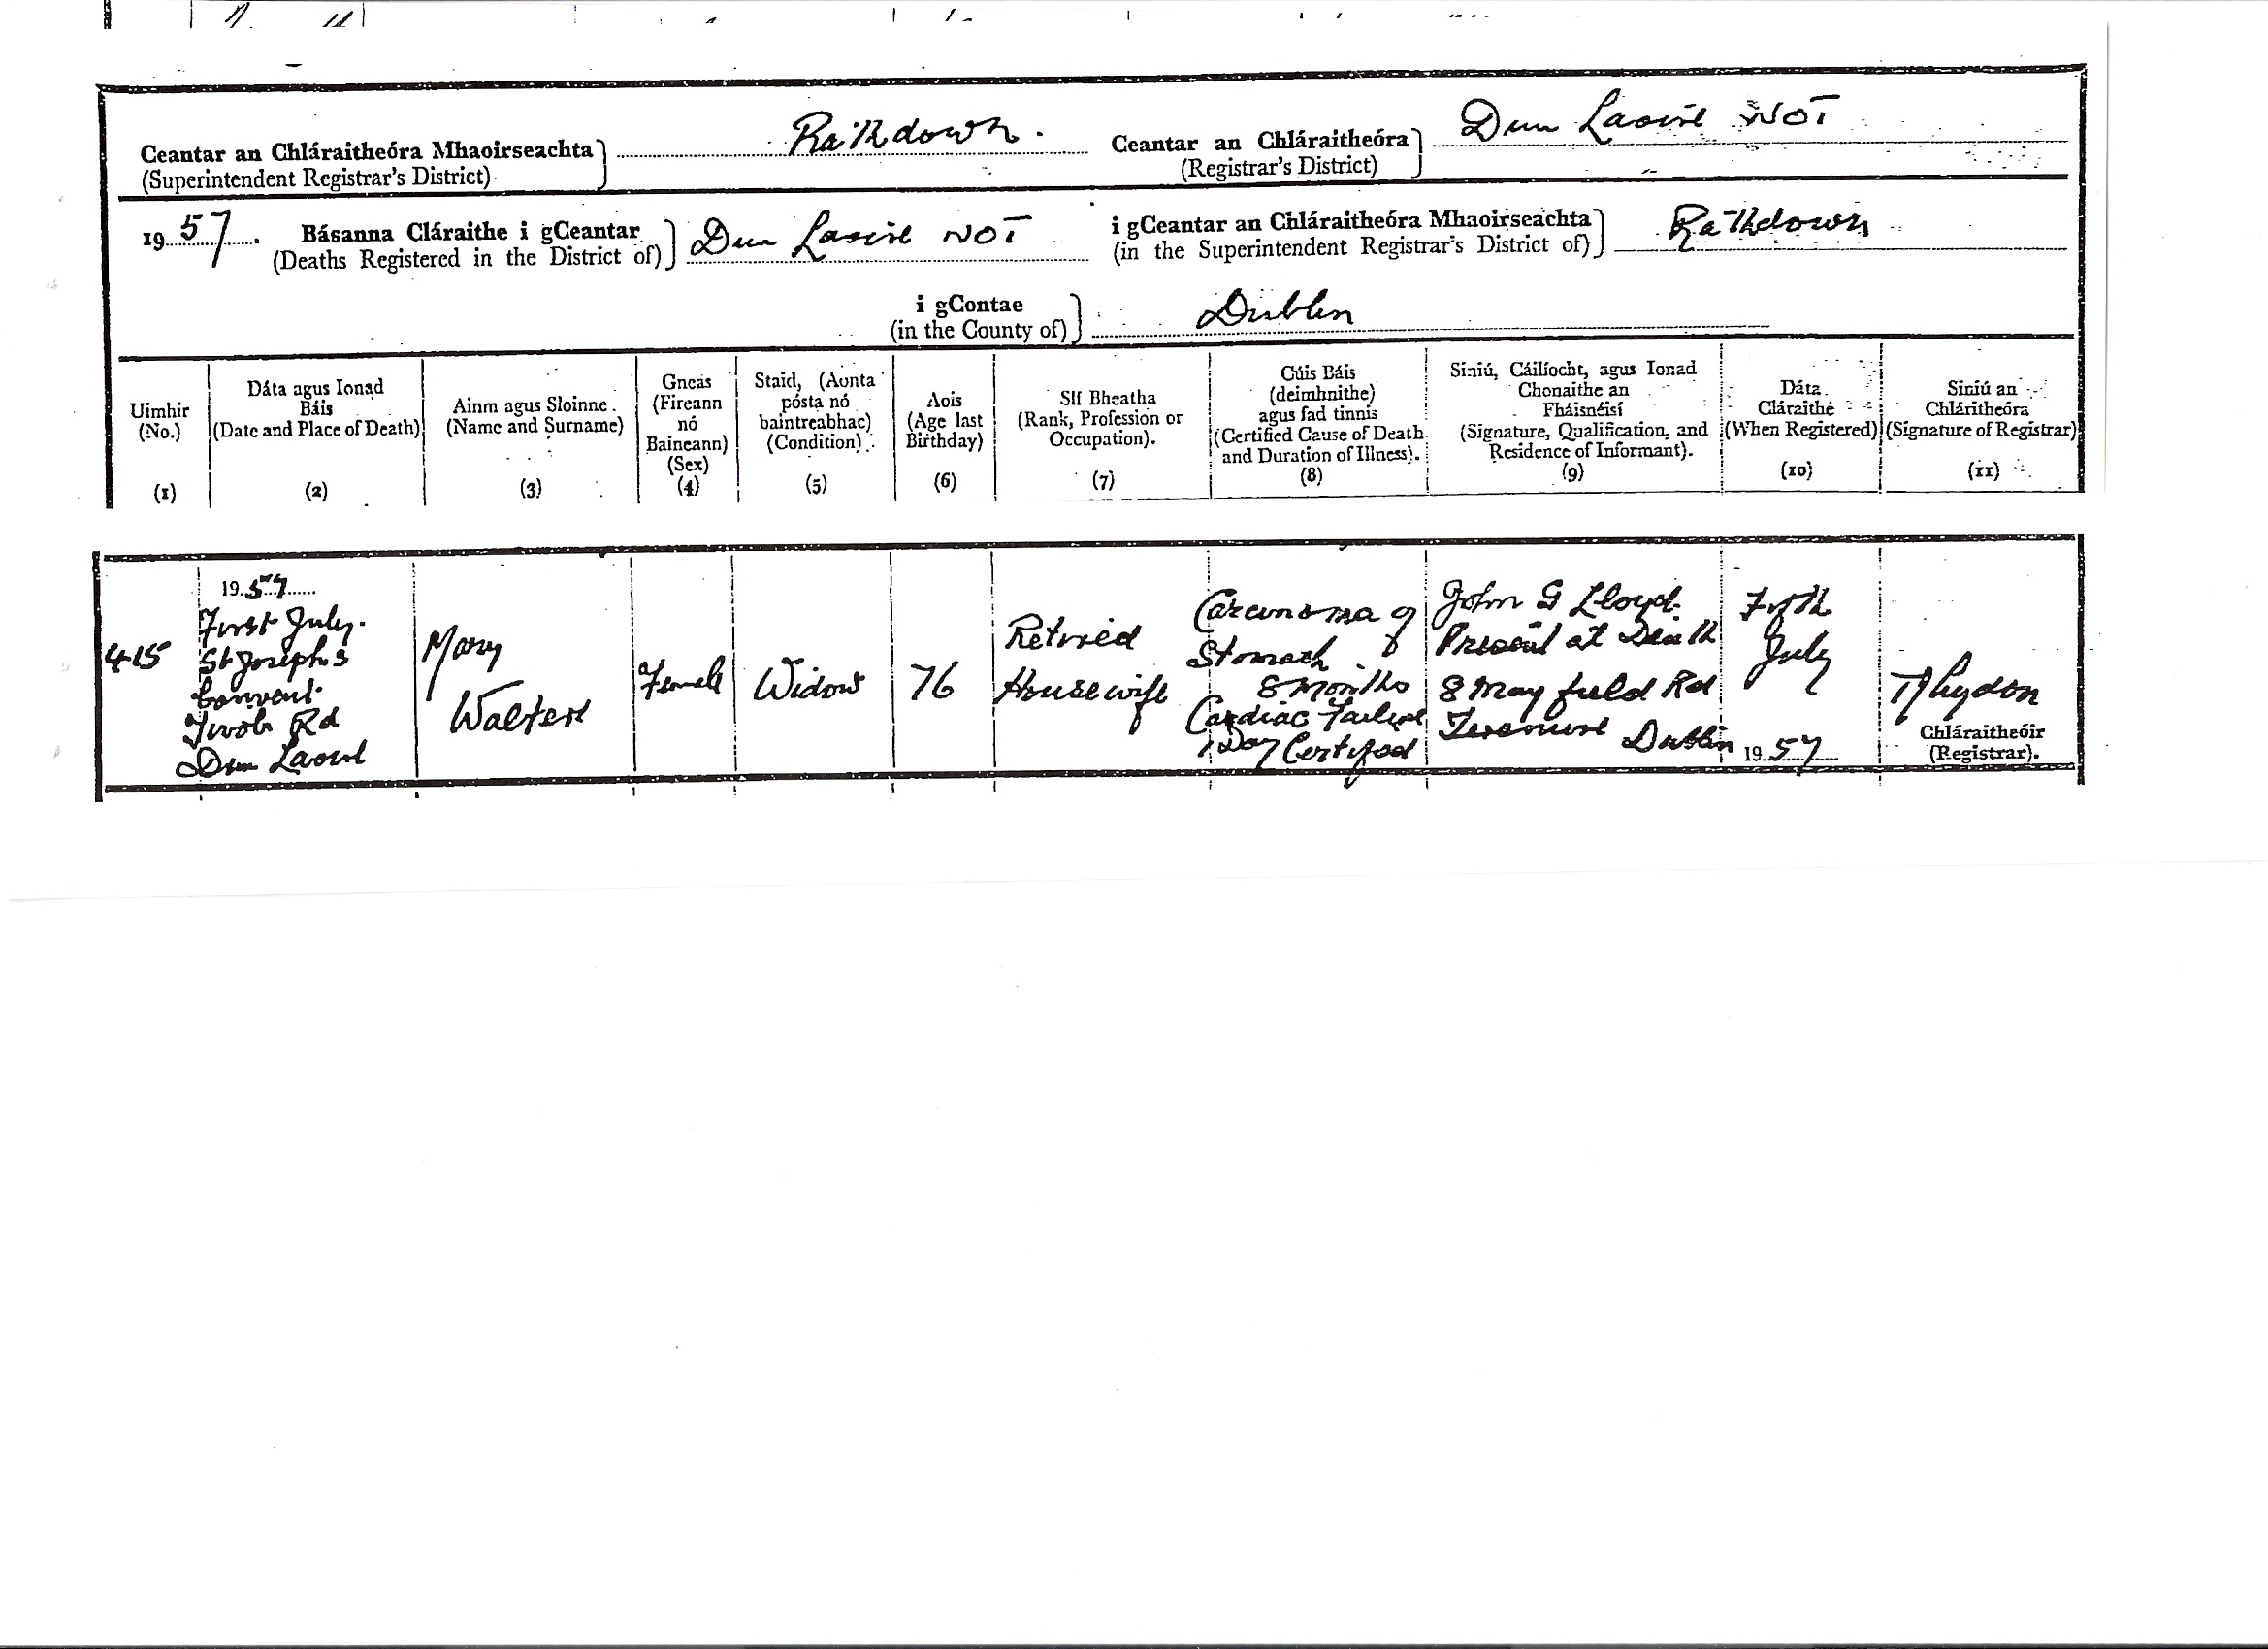 Ceantar an Chláraitheóra Mhaoirseachta
(Superintendent Registrar's District)
Rathdown.
Ceantar an Chláraitheóra
(Registrar's District)
Dun Laoire No 1
1957. Básanna Cláraithe i gCeantar
(Deaths Registered in the District of)
Dun Laoire No 1
i gCeantar an Chláraitheóra Mhaoirseachta
(in the Superintendent Registrar's District of)
Rathdown
i gContae
(in the County of)
Dublin
Uimhir
(No.)
(1)
Dáta agus Ionad
Báis
(Date and Place of Death)
(2)
Ainm agus Sloinne.
(Name and Surname)
(3)
Gneas
(Fireann
nó
Baineann)
(Sex)
(4)
Staid, (Aonta
pósta nó
baintreabhac)
(Condition)
(5)
Aois
(Age last
Birthday)
(6)
Slí Bheatha
(Rank, Profession or
Occupation).
(7)
Cúis Báis
(deimhnithe)
agus fad tinnis
(Certified Cause of Death
and Duration of Illness).
(8)
Siniú, Cáilíocht, agus Ionad
Chonaithe an
Fháisnéisí
(Signature, Qualification, and
Residence of Informant).
(9)
Dáta
Cláraithe
(When Registered)
(10)
Siniú an
Chláritheóra
(Signature of Registrar)
(11)
415
1957
First July.
St Josephs
Convent
Tivoli Rd
Dun Laoire
Mary
Walters
Female
Widow
76
Retired
Housewife
Carcinoma of
Stomach
8 Months
Cardiac Failure
1 Day Certified
John G Lloyd.
Present at Death
8 Mayfield Rd
Terenure Dublin
Fifth
July
1957
Chláraitheóir
(Registrar).